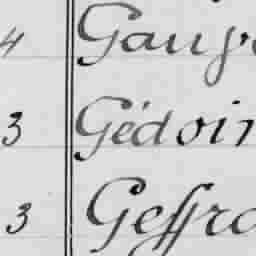 4 Gauy
3 Gédoin
3 Geffro